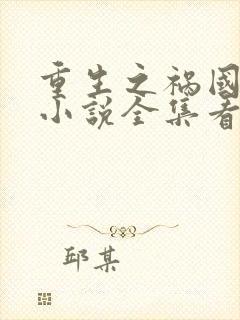 重生之祸國
小说全集看
邱某